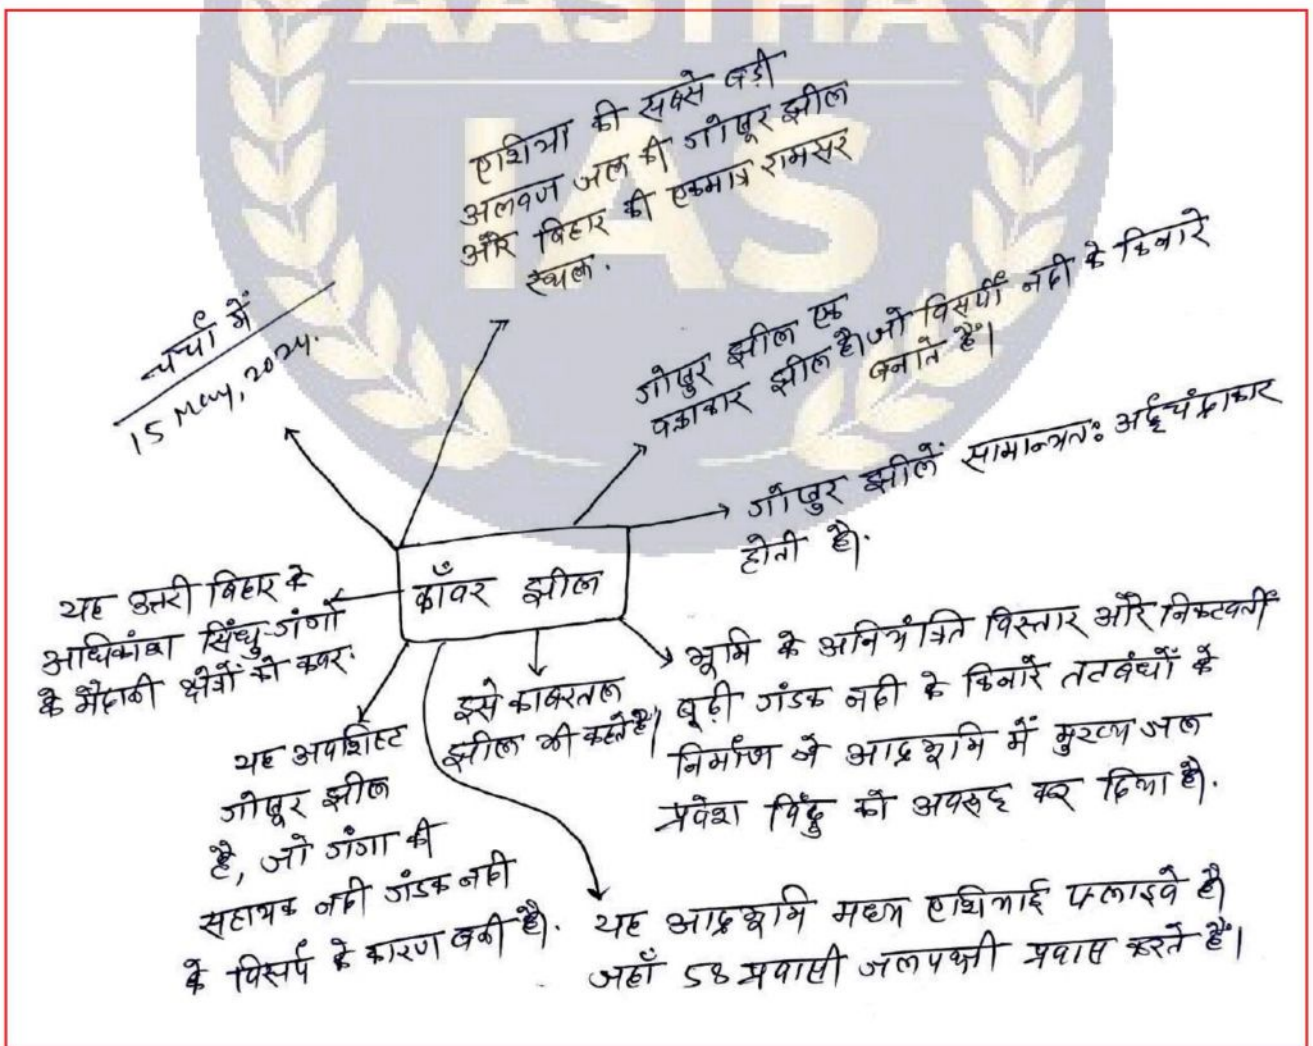 AASTHA
IAS
चर्चा में
15 May, 2024.
एशिया की सबसे बड़ी
अलवण जल की गोखूर झील
और बिहार की एकमात्र रामसर
स्थल.
गोखुर झील एक
वक्राकार झील है। जो विसर्पी नदी के किनारे
बनाते हैं।
गोखुर झीलें सामान्यतः अर्द्धचंद्राकार
होती है।
काँवर झील
यह उत्तरी बिहार के
अधिकांश सिंधु-गंगा
के मैदानी क्षेत्रों को कवर.
यह अवशिष्ट
गोखूर झील
है, जो गंगा की
सहायक नदी गंडक नदी
के विसर्प के कारण बनी है।
इसे काबरताल
झील भी कहते है।
भूमि के अनियंत्रित विस्तार और निकटवर्ती
बूढ़ी गंडक नदी के किनारे तटबंधों के
निर्माण ने आद्रभूमि में मुख्य जल
प्रवेश बिंदु को अवरूद्ध कर दिया है।
यह आद्रभूमि मध्य एशियाई फ्लाइवे है।
जहाँ 58 प्रवासी जलपक्षी प्रवास करते हैं।